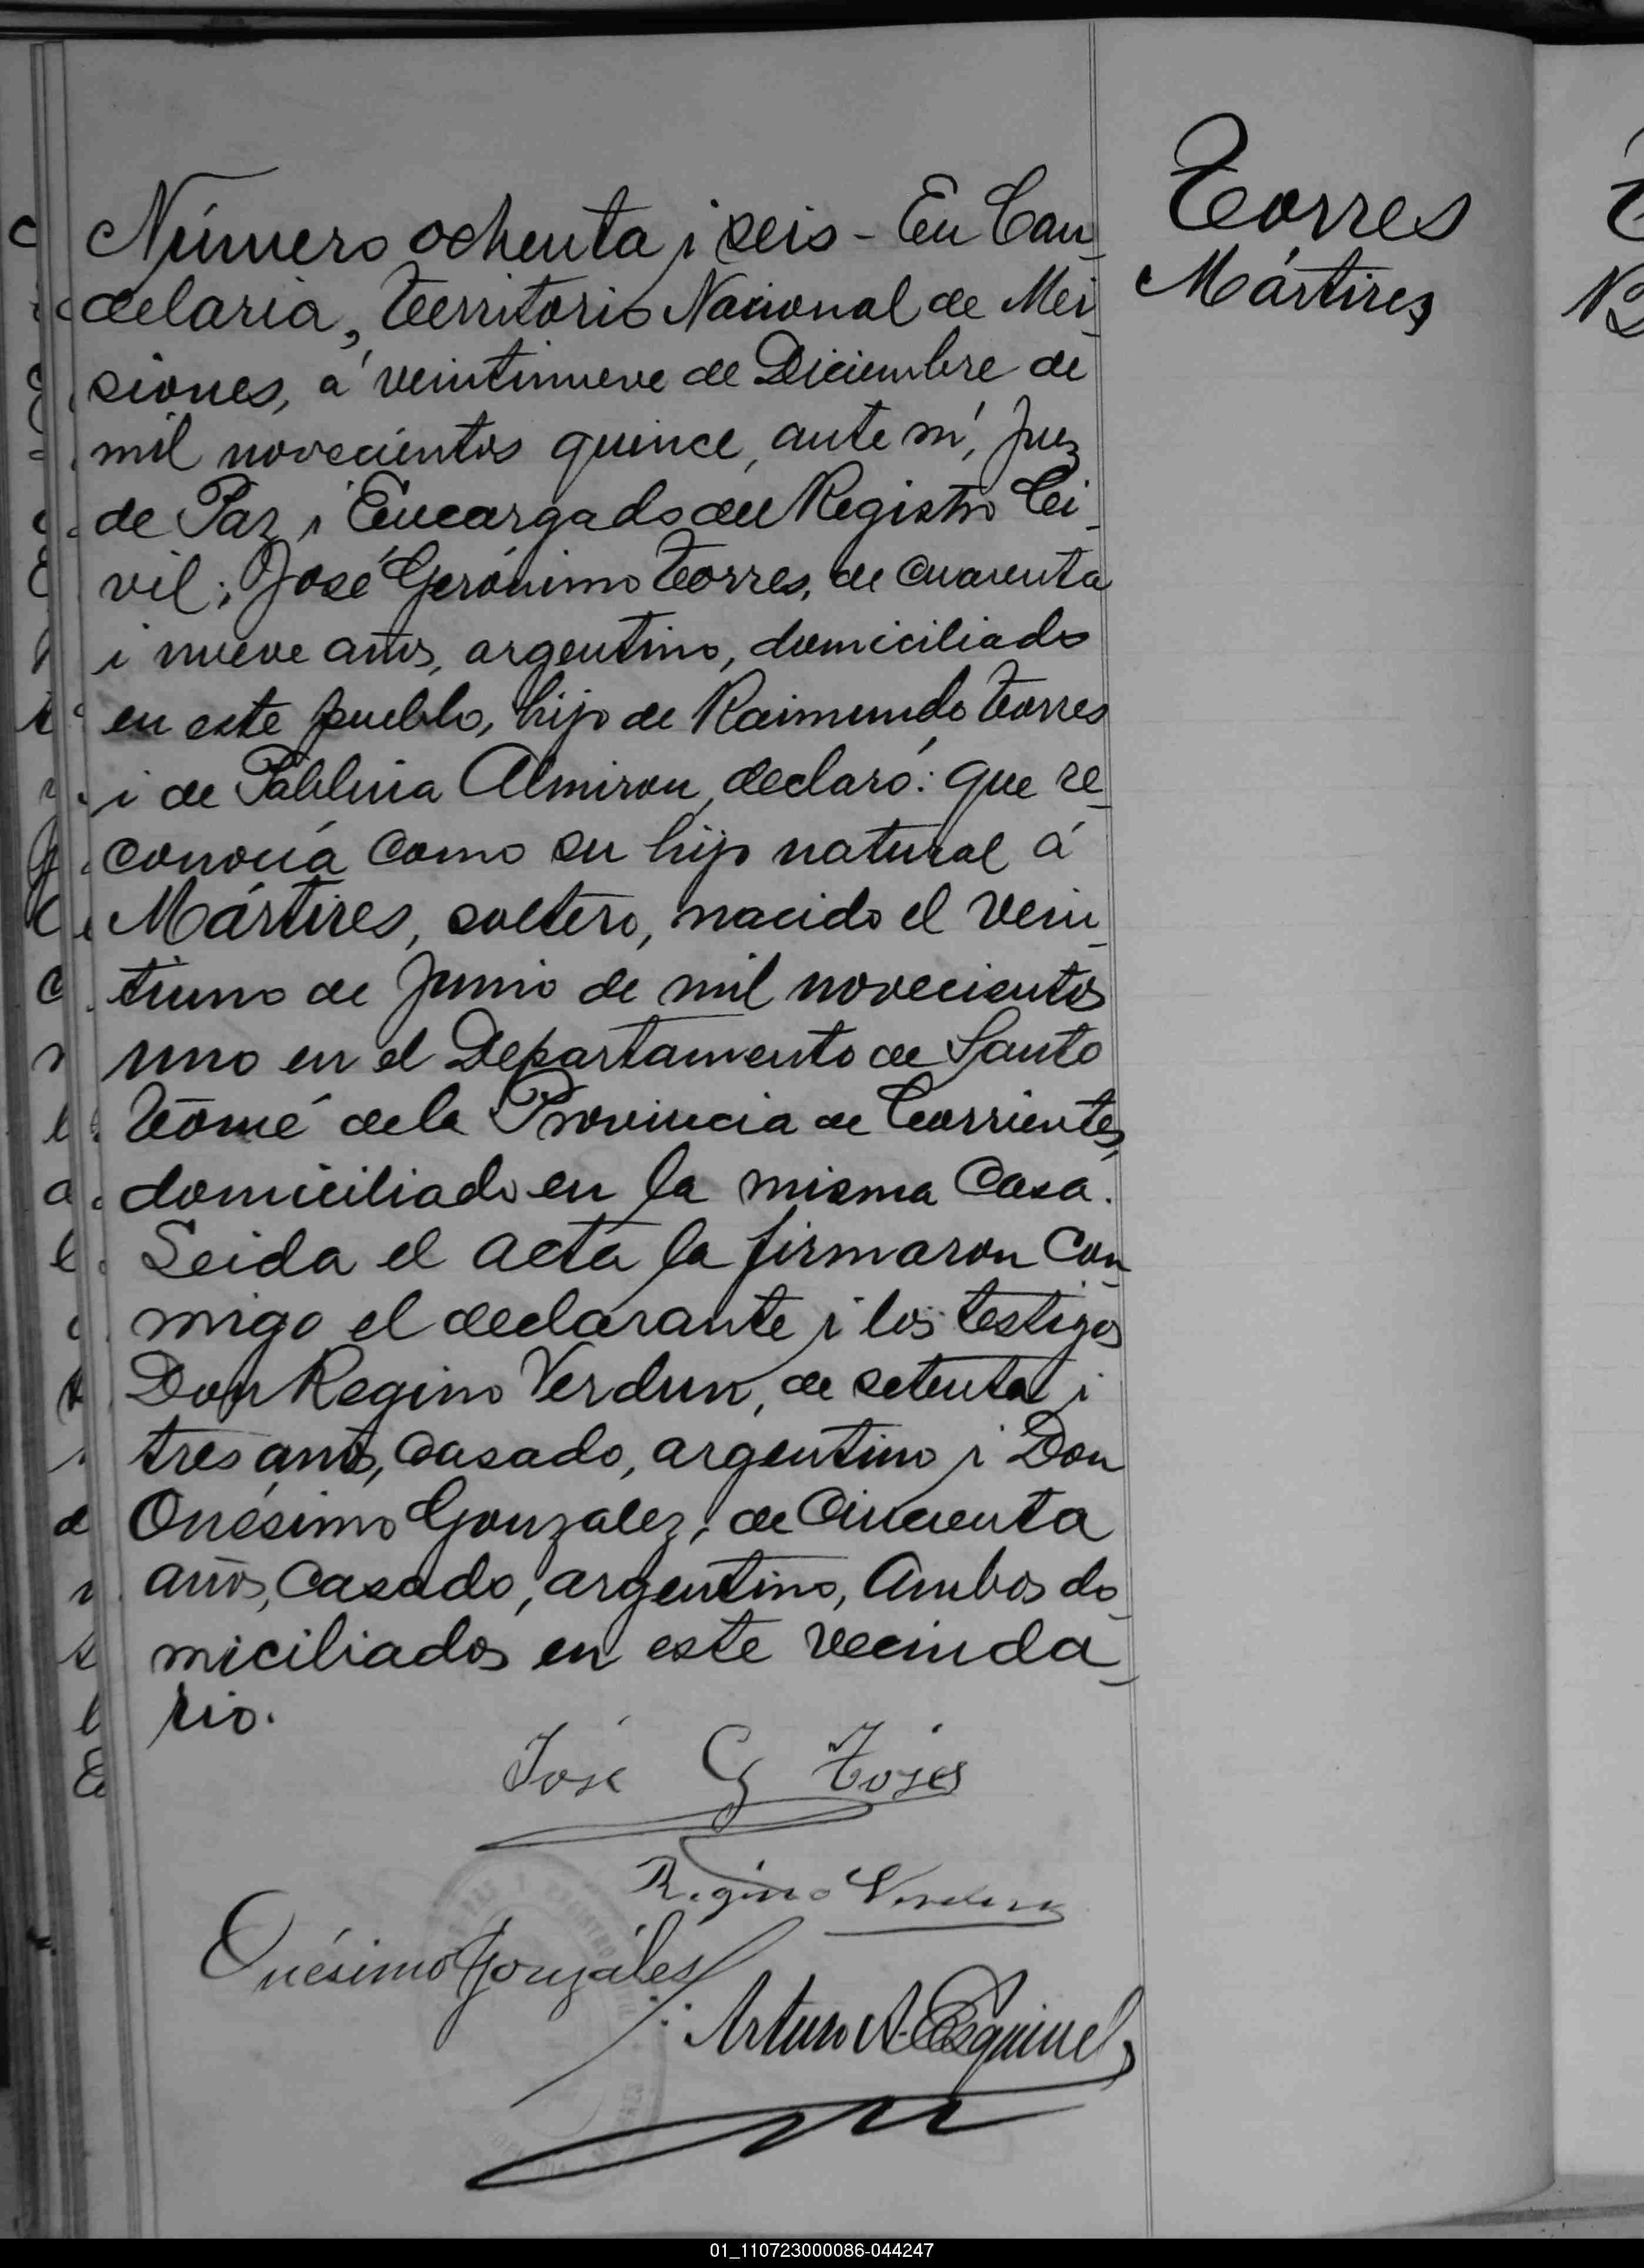 Torres
Mártires
Número ochenta i seis - En Can-
delaria, Territorio Nacional de Mi-
siones, á veintinueve de Diciembre de
mil novecientos quince, ante mí, Juez
de Paz i Encargado del Registro Ci-
vil; José Gerónimo Torres, de cuarenta
i nueve años, argentino, domiciliado
en este pueblo, hijo de Raimundo Torres
i de Pablina Almiron, declaró: que re-
conocía como su hijo natural á
Mártires, soltero, nacido el vein-
tiuno de Junio de mil novecientos
uno en el Departamento de Santo
Tomé de la Provincia de Corrientes,
domiciliado en la misma casa.
Leida el acta la firmaron con-
migo el declarante i los testigos
Don Regino Verdun, de setenta i
tres años, casado, argentino i Don
Onésimo Gonzalez, de cincuenta
años, casado, argentino, ambos do-
miciliados en este vecinda-
rio.
José G Tores
Regino Verdun
Onésimo Gonzáles
Arturo A. Esquivel
01_110723000086-044247